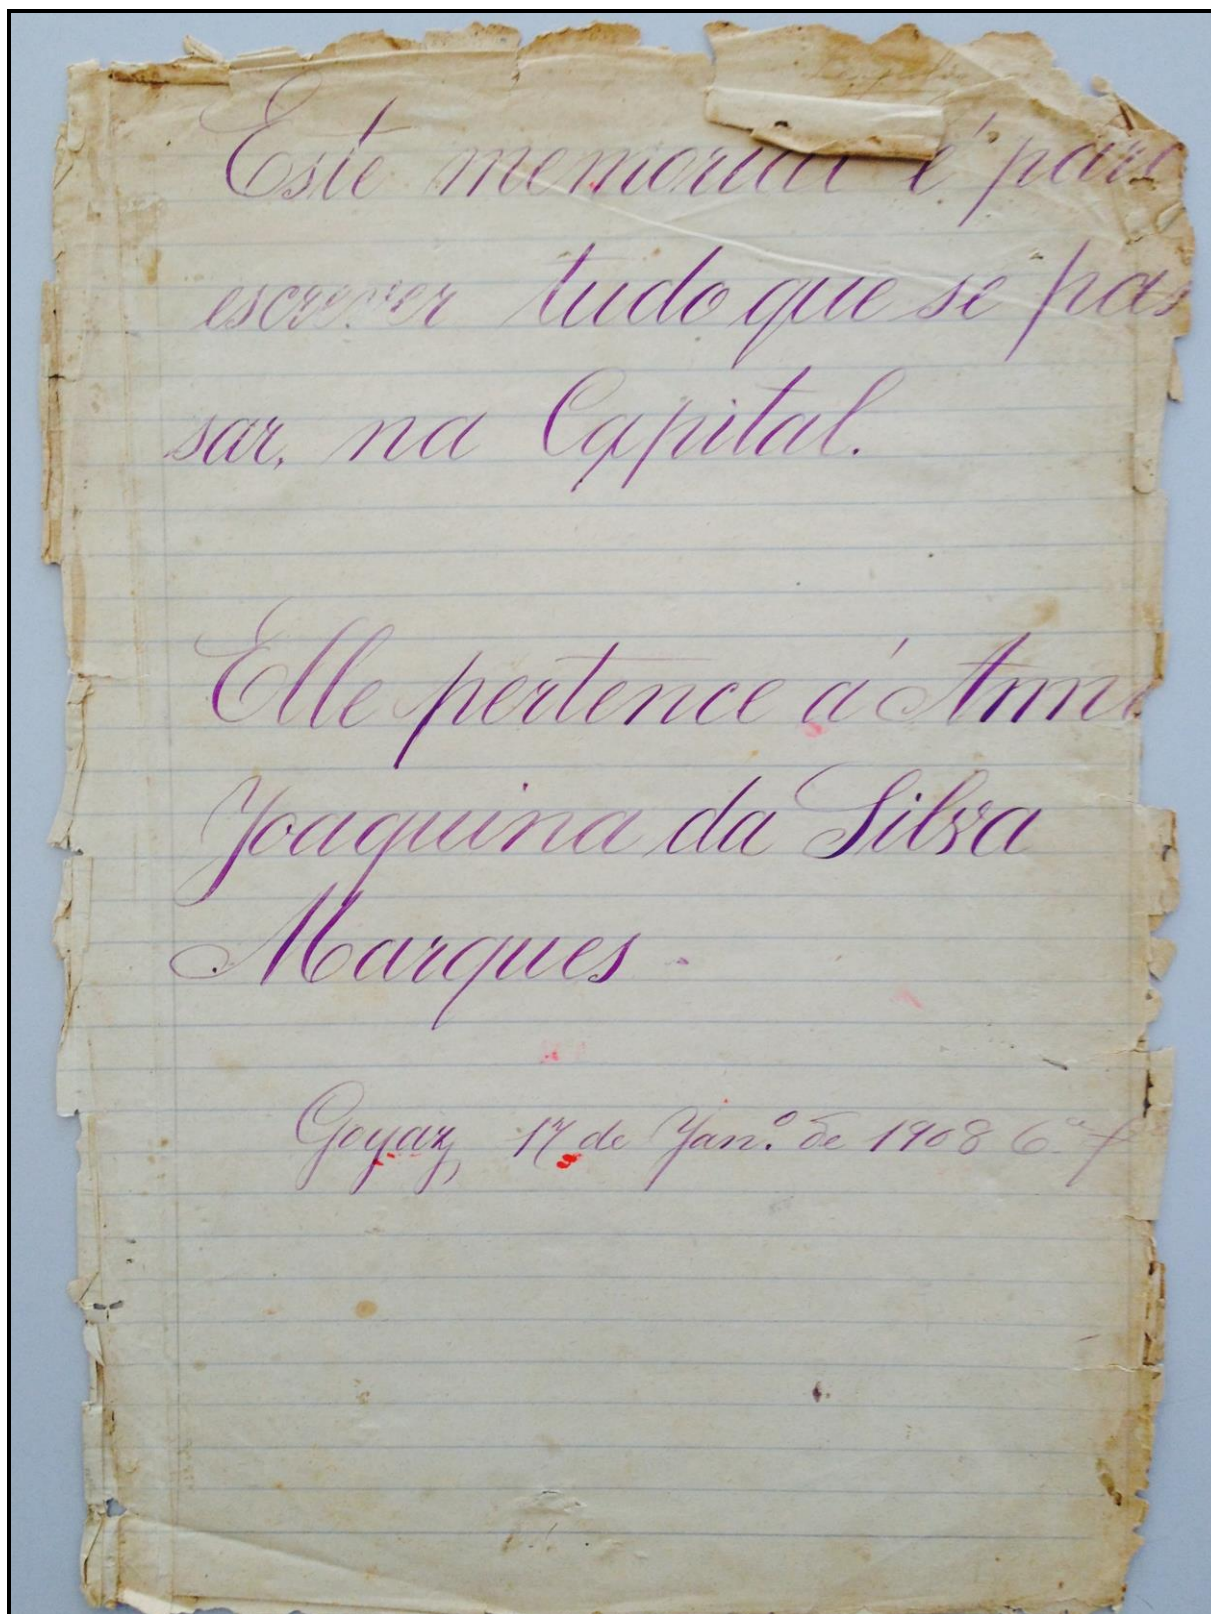 Este memorial é para
escrever tudo que se pas
sar, na Capital.
Elle pertence á Anna
Joaquina da Silva
Marques.
Goyaz, 17 de Jan.º de 1908 6ª f